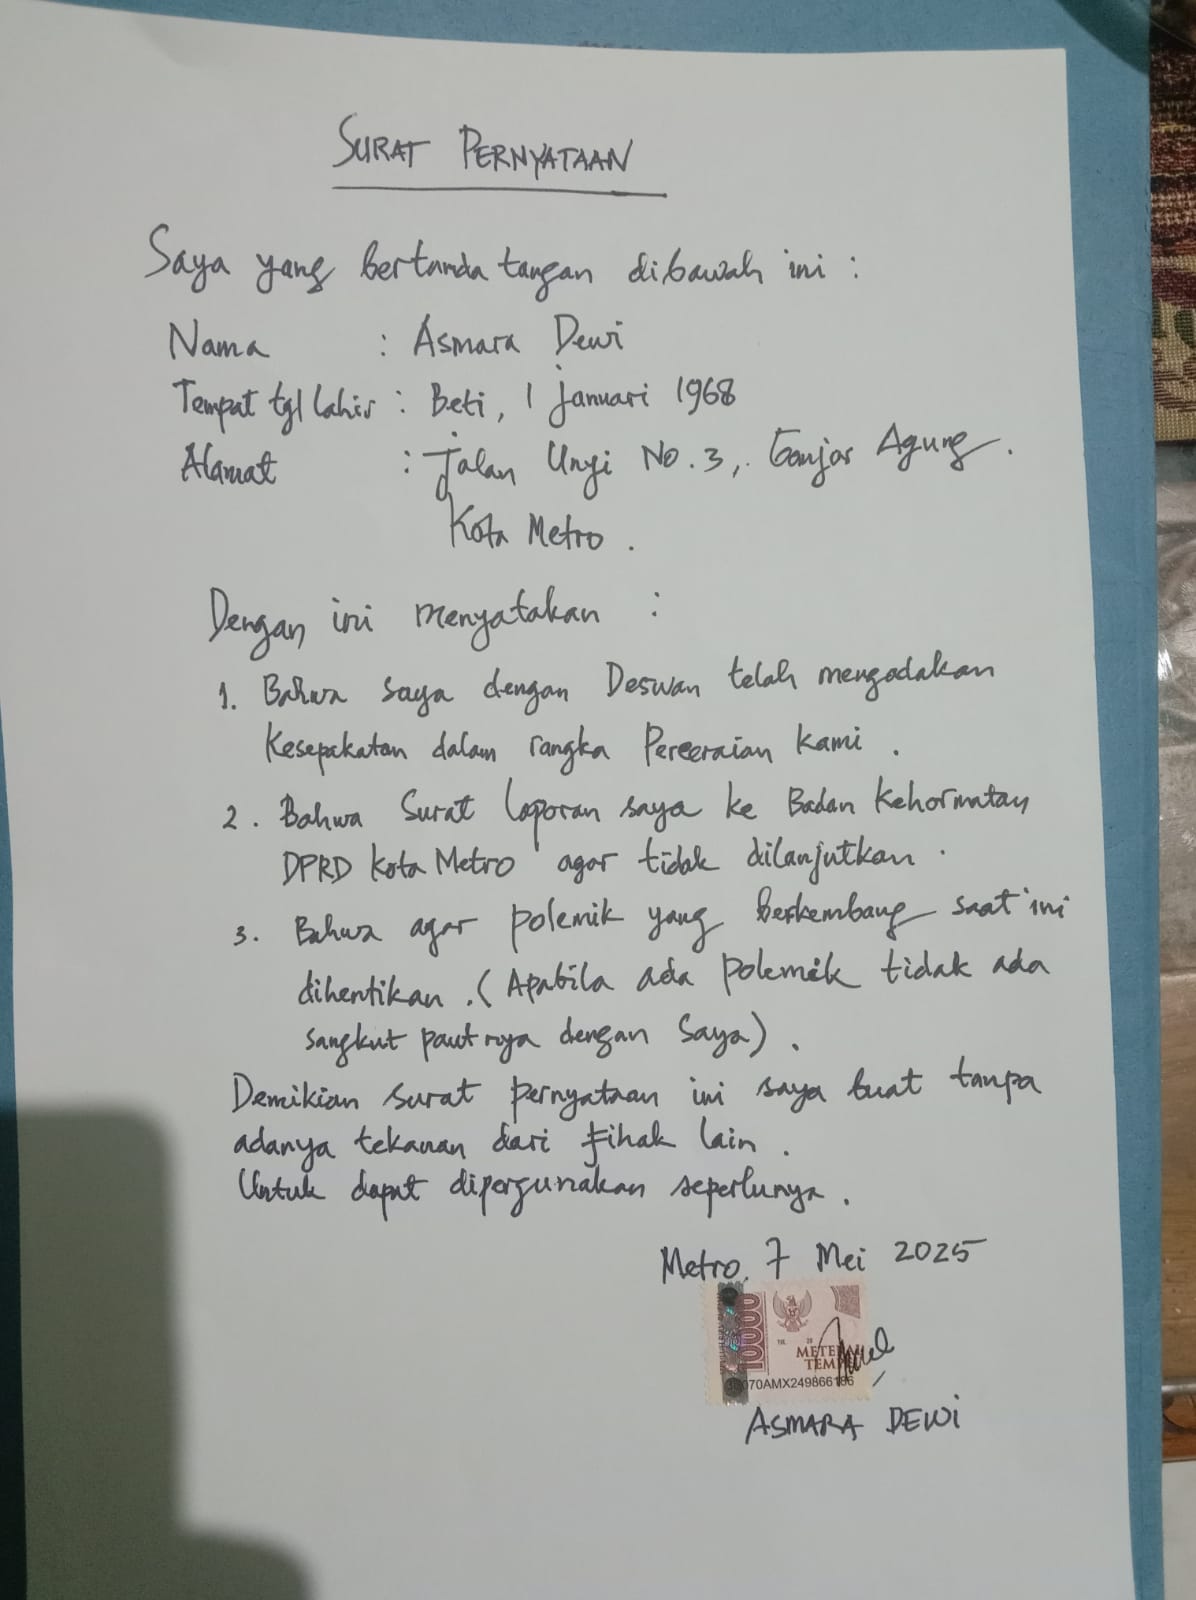 SURAT PERNYATAAN
Saya yang bertanda tangan dibawah ini :
Nama : Asmara Dewi
Tempat tgl lahir : Beti, 1 Januari 1968
Alamat : Jalan Unyi No. 3, Ganjar Agung.
Kota Metro .
Dengan ini menyatakan :
1. Bahwa saya dengan Deswan telah mengadakan
Kesepakatan dalam rangka Perceraian kami .
2. Bahwa Surat laporan saya ke Badan Kehormatan
DPRD Kota Metro agar tidak dilanjutkan .
3. Bahwa agar polemik yang berkembang saat ini
dihentikan .( Apabila ada polemik tidak ada
sangkut pautnya dengan saya) .
Demikian surat pernyataan ini saya buat tanpa
adanya tekanan dari fihak lain .
Untuk dapat dipergunakan seperlunya .
Metro, 7 Mei 2025
10000
METE
TEM
70AMX249866186
ASMARA DEWI